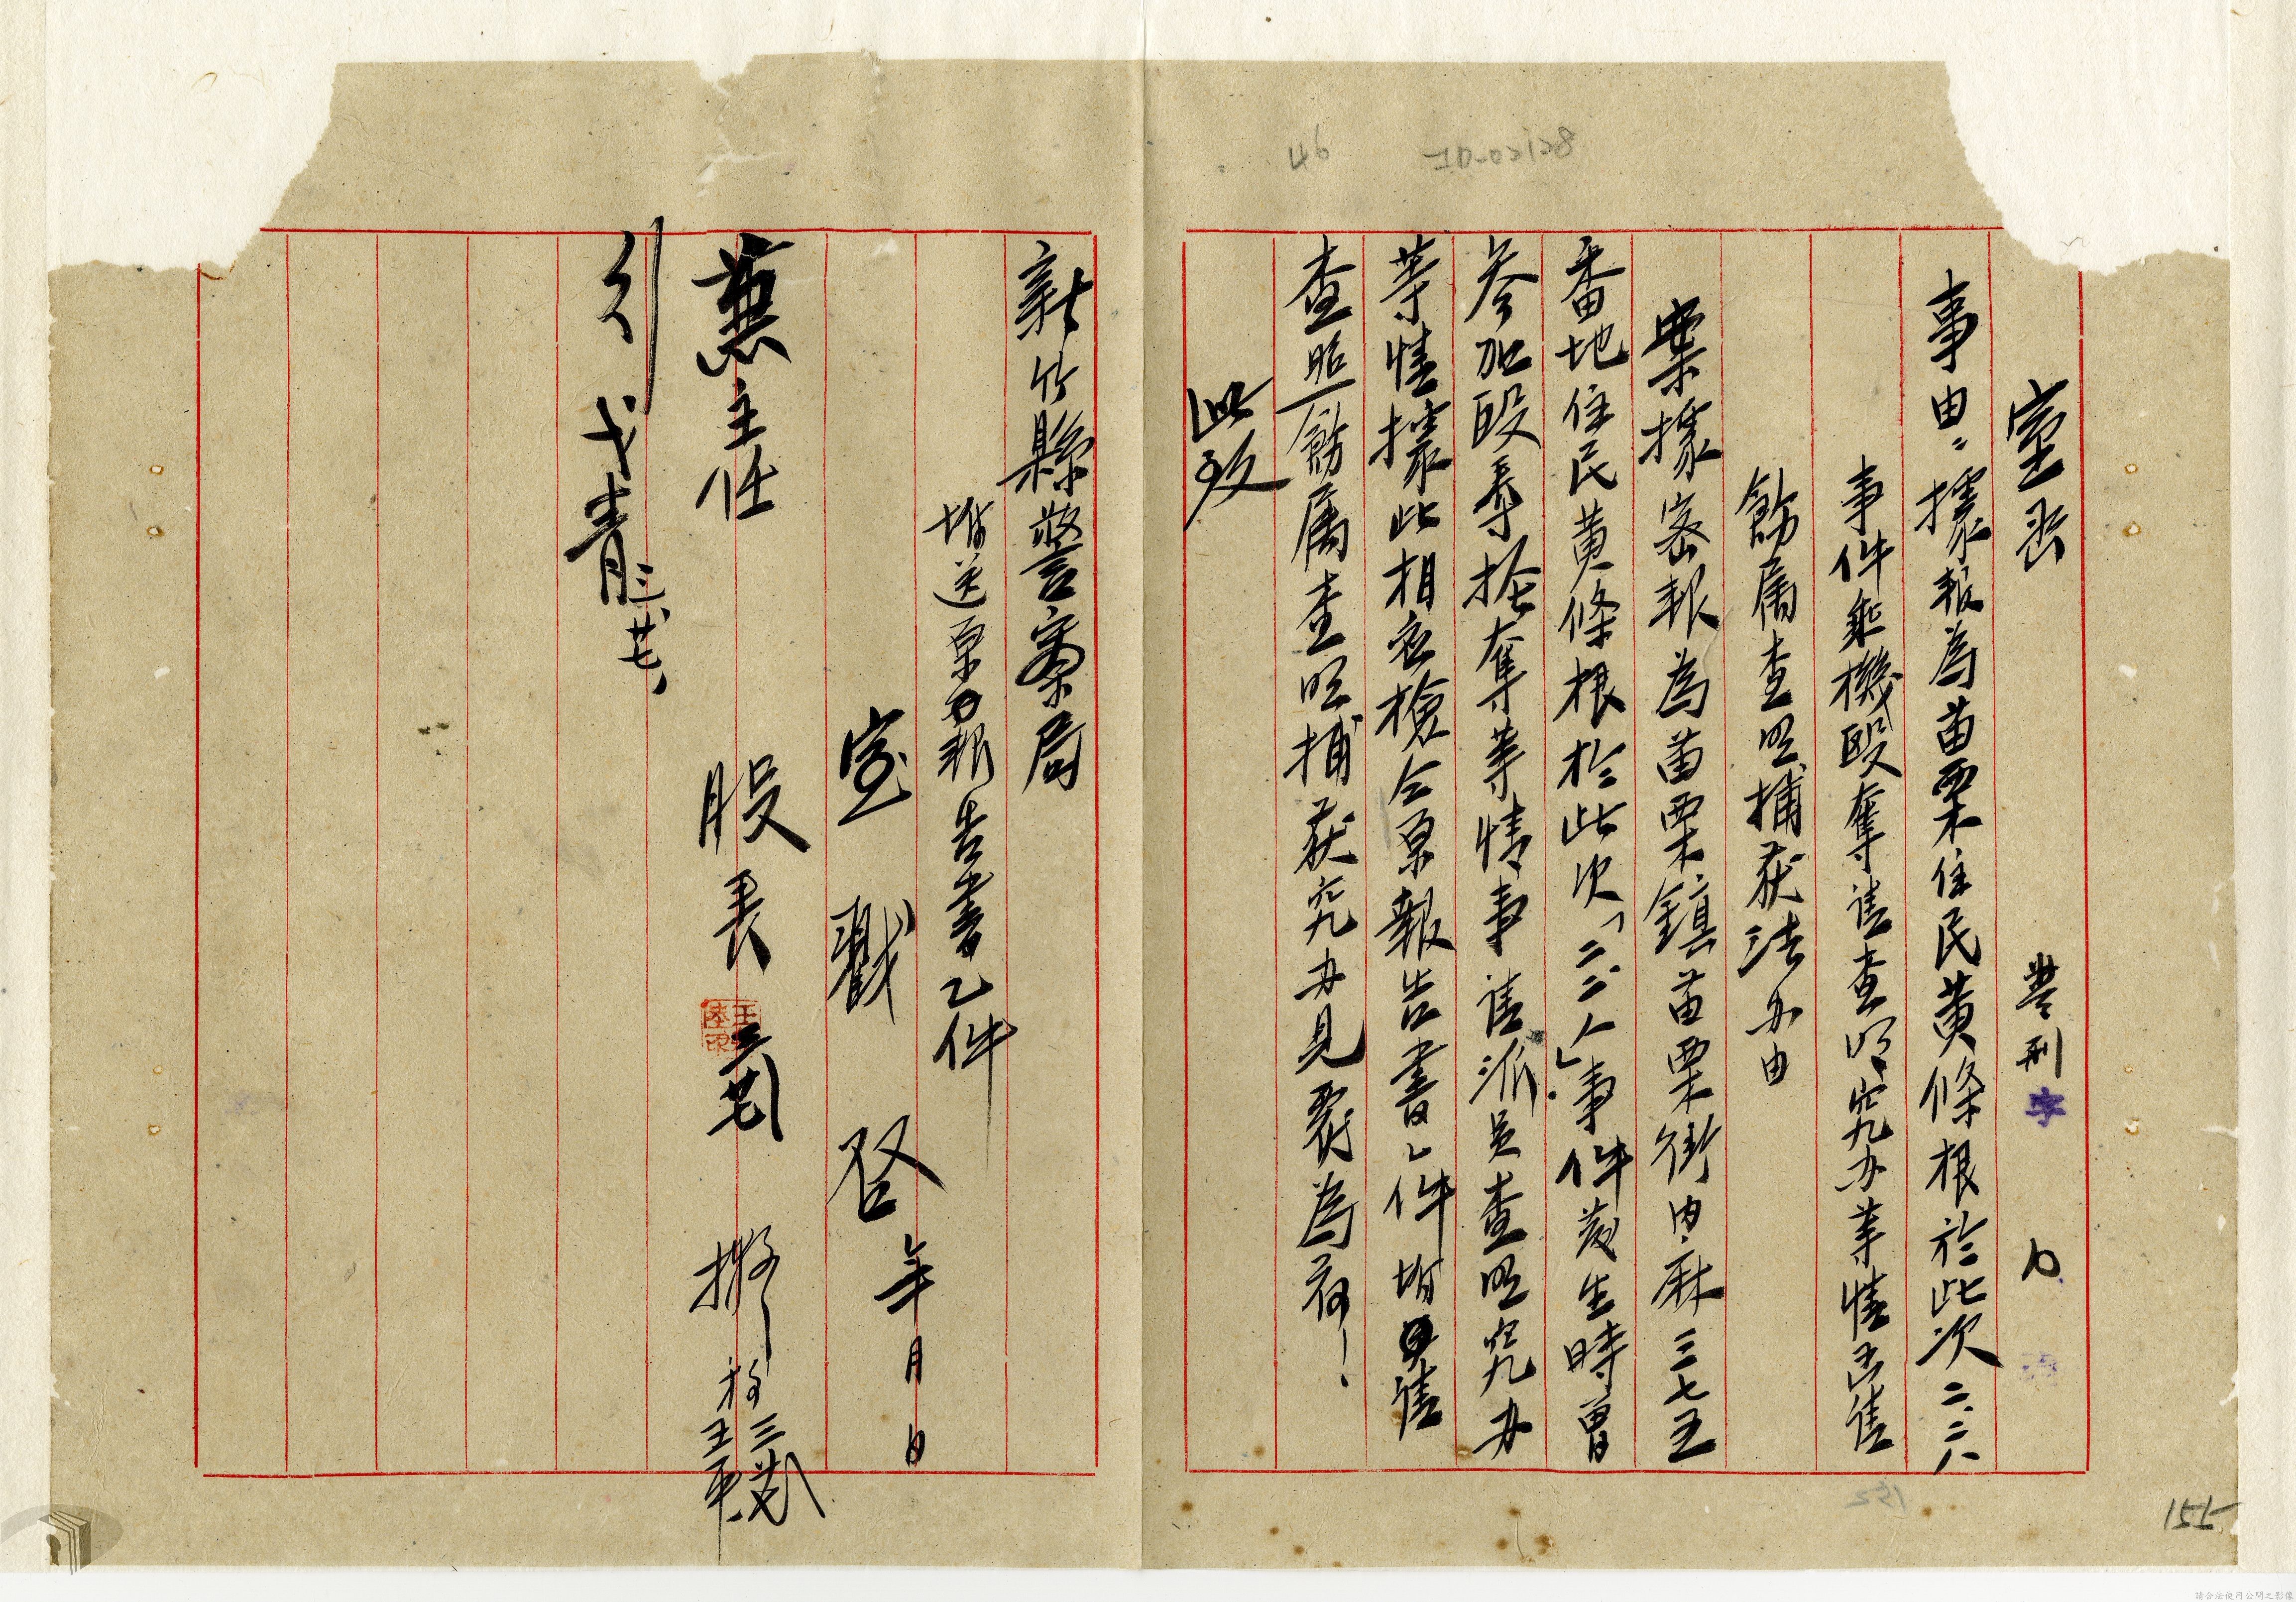 室
豊刑字
事由:據報為苗栗住民黃條根於此次二.二八
事件乘機毆奪請查明究办等情函請
飭屬查照捕获法办由
案據密報為苗栗鎮苗栗街内麻三七五
番地住民黃條根於此次「二.二.八」事件发生時曾
參加毆辱搶奪等情事請派員查照究办
等情據此相应檢全原報告書乙件坿請
查照飭屬查照捕获究办見覆為荷!
此致
新竹縣警察局
坿送原報告書乙件
室戳 啓 年月日
兼主任
股長 三廿七 擬
行 弋青 三、廿七、
請合法使用公開之影像
155
46